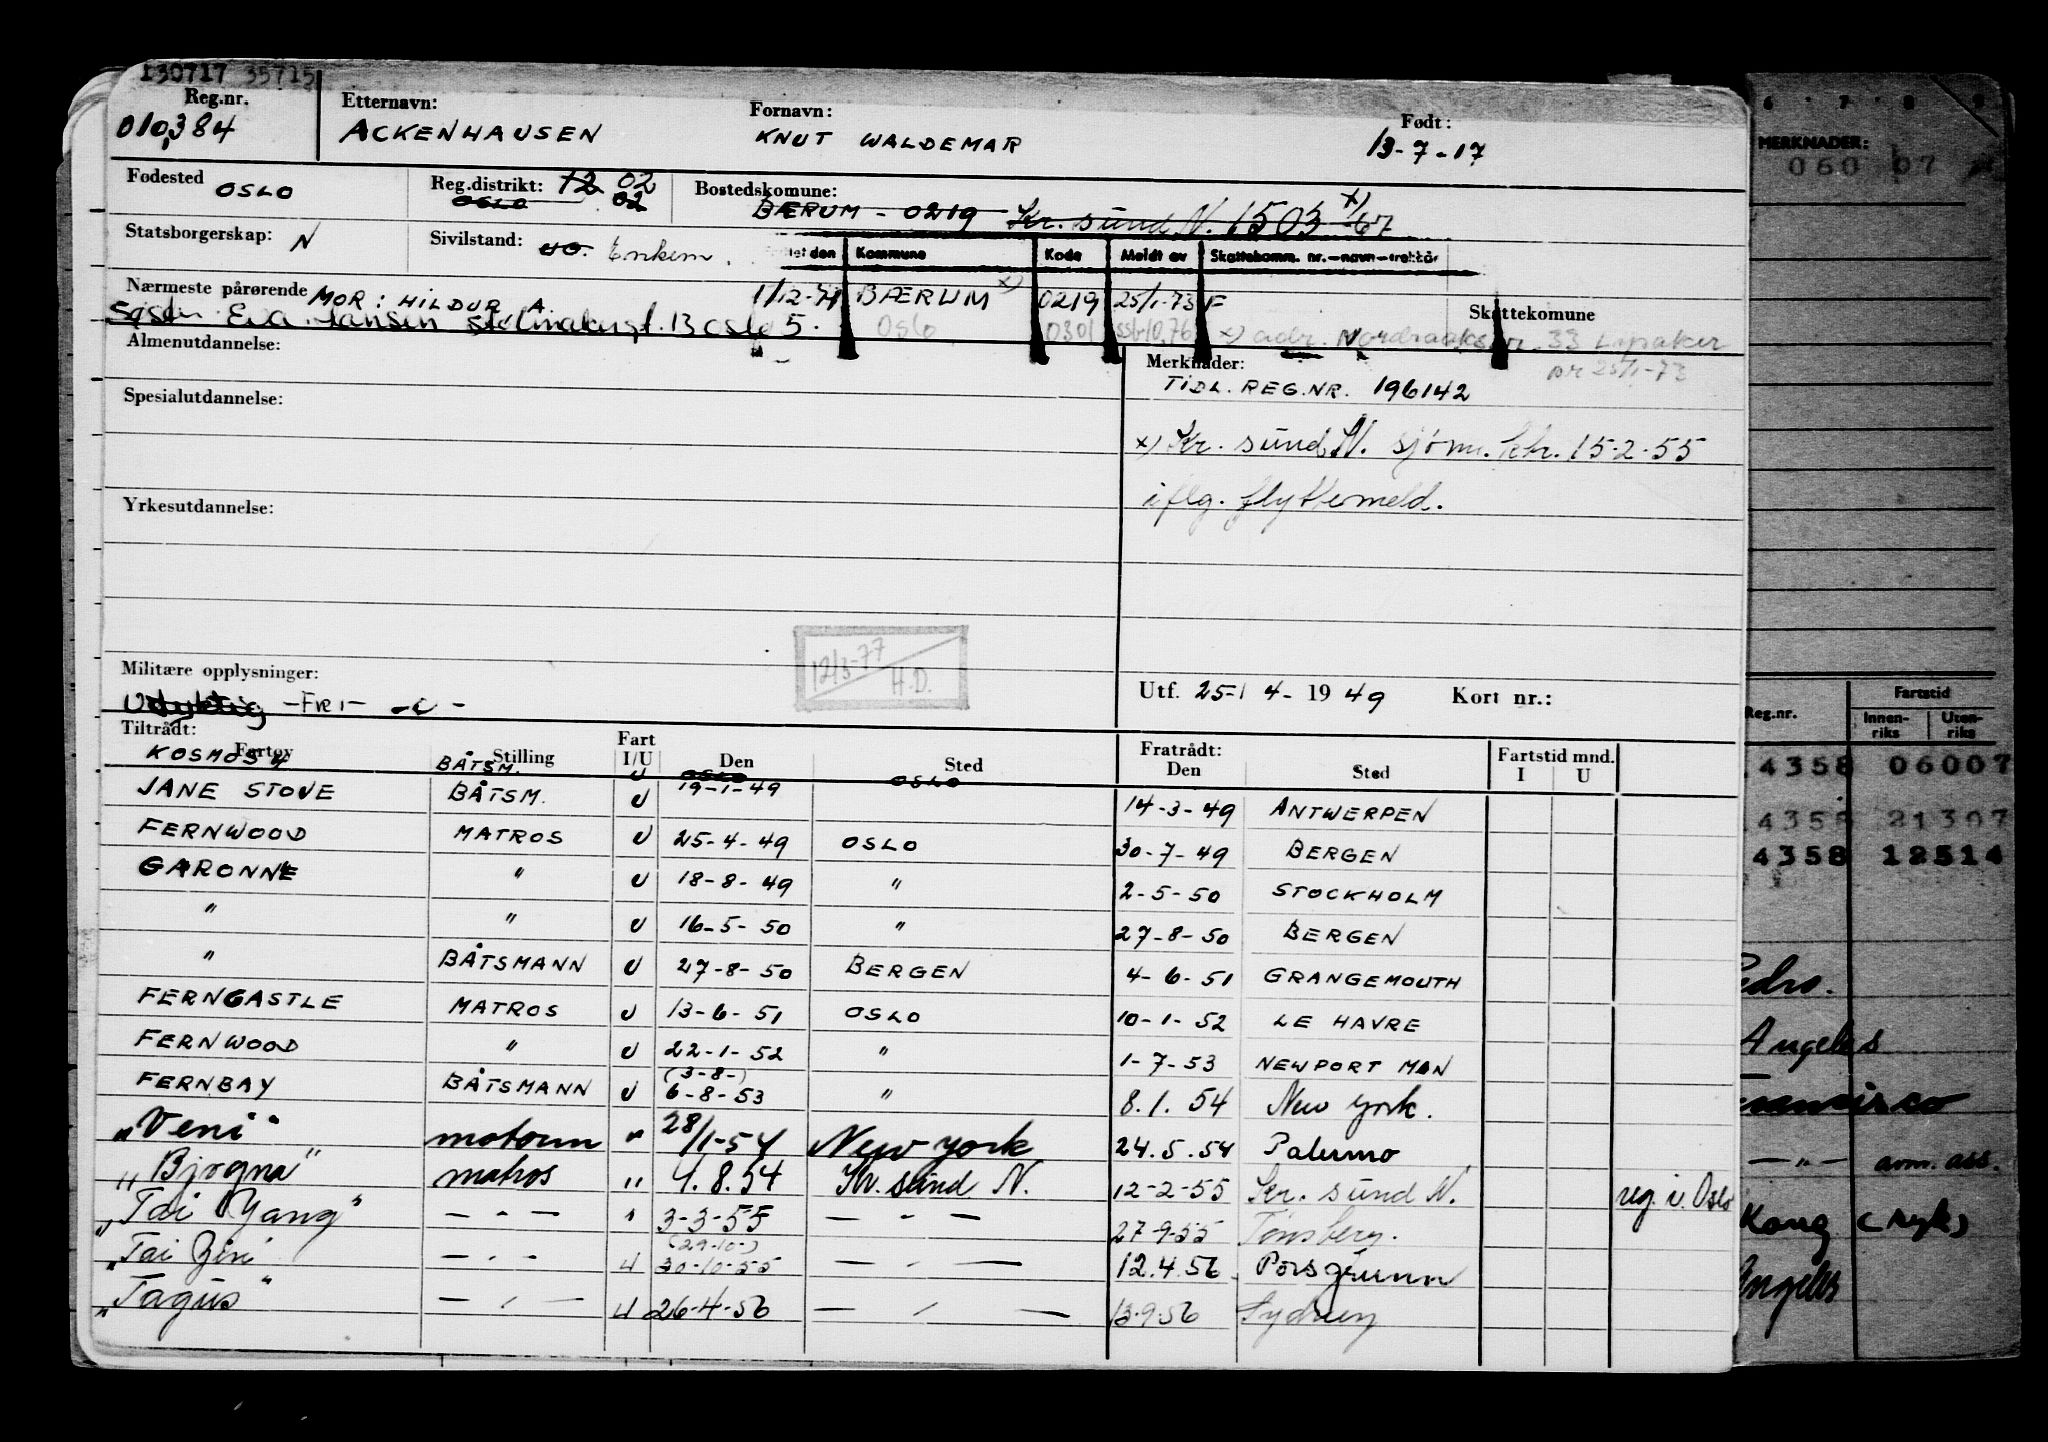 130717 35715
Reg.nr. Etternavn: Fornavn: Født:
010384 ACKENHAUSEN KNUT WALDEMAR 13-7-17
Fødested OSLO Reg.distrikt: 12 02 Bostedskomune:
OSLO 02 BÆRUM - 0219 Kr. sund N. 1503 x) /67
Statsborgerskap: N Sivilstand: UG. Enkem.
Kommune Kode Meldt av Skattekomm. nr.—navn—trekkår
Nærmeste pårørende MOR: HILDUR A. 1/12-71 BÆRUM x) 0219 25/1-73 F Skattekomune
Søster Eva Hansen 13 Oslo 5. Oslo 0301 x) adr. 33 Lysaker
25/1-73
Almenutdannelse: Merknader:
TIDL. REG.NR. 196142
Spesialutdannelse:
x) Kr. sund N. sjøm. ktr. 15-2-55
iflg. flyttemeld.
Yrkesutdannelse:
12/3-77 H.D.
Militære opplysninger:
Udyktig - Fri - Utf. 25- 4- 1949 Kort nr.:
Tiltrådt: Fart Fratrådt: Fartstid mnd.
Fartøy Stilling I/U Den Sted Den Sted I U
KOSMOS 4 BÅTSM. U OSLO OSLO
JANE STOVE BÅTSM. U 19-1-49 14-3-49 ANTWERPEN
FERNWOOD MATROS U 25-4-49 OSLO 30-7-49 BERGEN
GARONNE " U 18-8-49 " 2-5-50 STOCKHOLM
" " U 16-5-50 " 27-8-50 BERGEN
" BÅTSMANN U 27-8-50 BERGEN 4-6-51 GRANGEMOUTH
FERNCASTLE MATROS U 13-6-51 OSLO 10-1-52 LE HAVRE
FERNWOOD " U 22-1-52 " 1-7-53 NEWPORT MON
FERNBAY BÅTSMANN U (3-8-) 6-8-53 " 8.1.54 New York.
"Veni" motorm " 28/1-54 New York 24.5.54 Palermo
"Bjorgna" matros " 4.8.54 Kr. sund N. 12-2-55 Kr. sund N. reg. i. Oslo
"Tai Yang" — " — " 3-3-55 — " — 27-9-55 Tønsberg.
"Tai Yin" — " — U (29-10-) 30-10-55 — " — 12.4.56 Porsgrunn
"Tagus" — " — U 26-4-56 — " — 13-9-56 Sydney
6 7 8 9
MERKNADER:
060 07
Fartstid
Reg.nr. Innen-riks Uten-riks
4358 06007
4358 21307
4358 12514
Pedro.
Angeles
— " — avm. ass.
Kong (syk)
Angeles